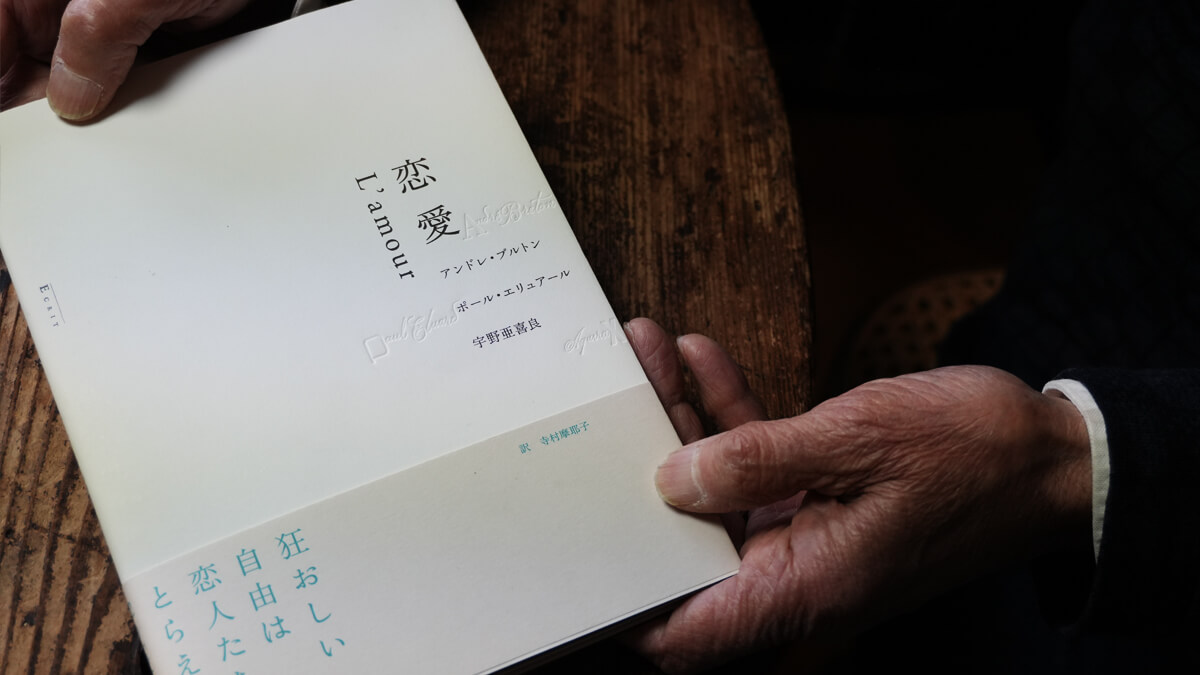 恋愛
L'amour
André Breton
アンドレ・ブルトン
ポール・エリュアール
Paul Eluard
宇野亜喜良
ECRIT
訳 寺村摩耶子
狂おしい
自由は
恋人た
とらえ